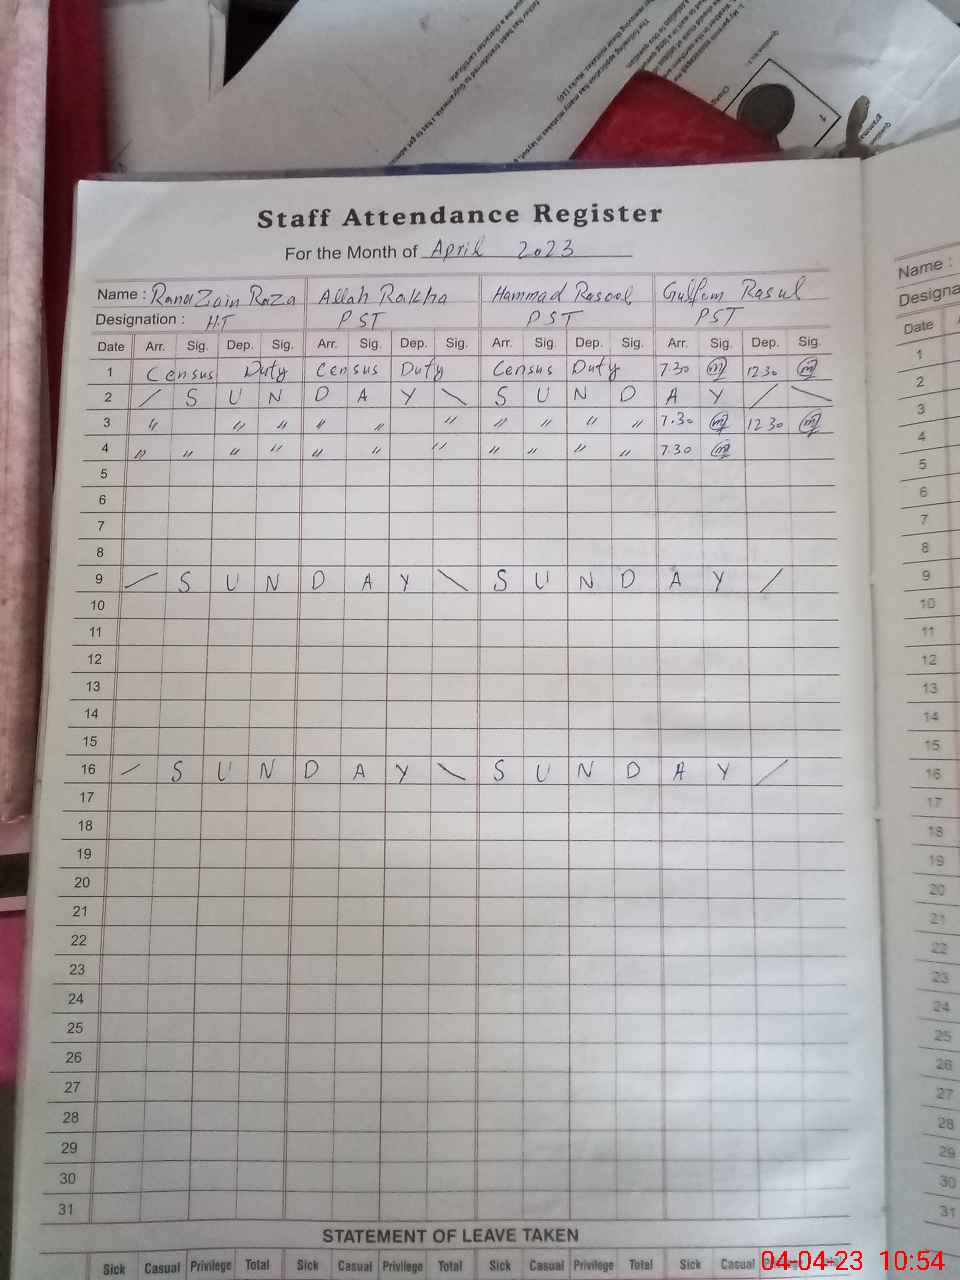 Staff Attendance Register
For the Month of April 2023
Name : Rana Zain Raza Allah Rakha Hammad Rasool Gulfam Rasul
Designation : HT PST PST PST
Date Arr. Sig. Dep. Sig. Arr. Sig. Dep. Sig. Arr. Sig. Dep. Sig. Arr. Sig. Dep. Sig.
1 Census Duty Census Duty Census Duty 7.30 12.30
2 / S U N D A Y \ S U N D A Y / \
3 〃 〃 〃 〃 〃 〃 〃 〃 〃 〃 7.30 12.30
4 〃 〃 〃 〃 〃 〃 〃 〃 〃 〃 〃 7.30
5
6
7
8
9 / S U N D A Y \ S U N D A Y /
10
11
12
13
14
15
16 / S U N D A Y \ S U N D A Y /
17
18
19
20
21
22
23
24
25
26
27
28
29
30
31
STATEMENT OF LEAVE TAKEN
Sick Casual Privilege Total Sick Casual Privilege Total Sick Casual Privilege Total Sick Casual
04-04-23 10:54
Name :
Designa
Date
1
2
3
4
5
6
7
8
9
10
11
12
13
14
15
16
17
18
19
20
21
22
23
24
25
26
27
28
29
30
31